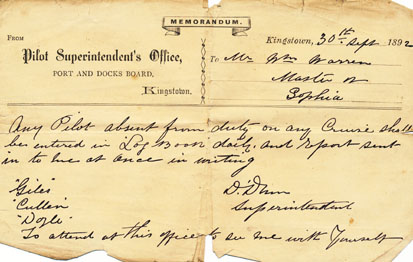 MEMORANDUM.
FROM
Pilot Superintendent's Office,
PORT AND DOCKS BOARD,
Kingstown.
Kingstown, 30th Sept 1892
To Mr Wm Warren
Master of
Sophia
Any Pilot absent from duty on any Cruise shall
be entered in Log Book daily, and report sent
in to me at once in writing
"Giles"
"Cullen"
"Doyle"
D. Dunn
Superintendent
To attend at this office to see me with Yourself